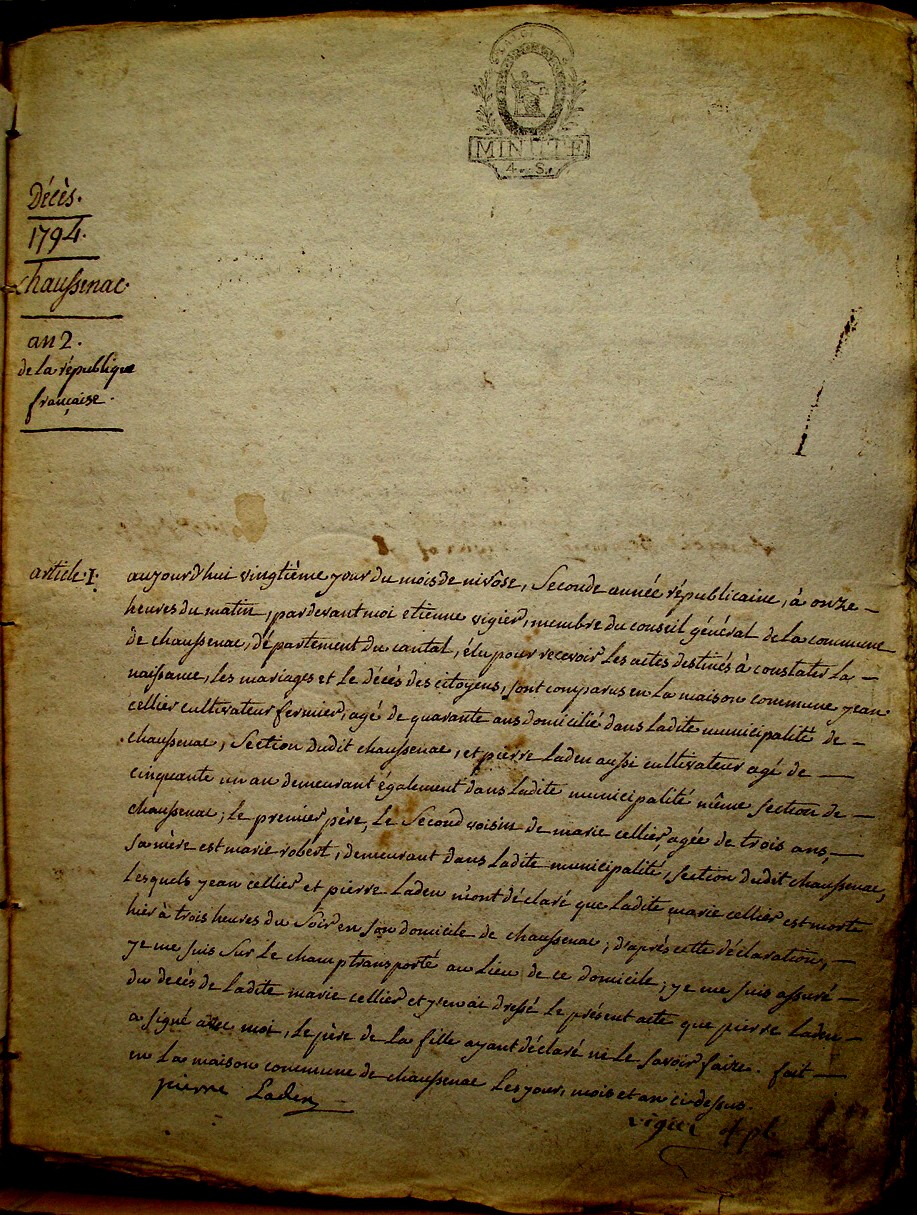 MINUTE
4. S.
Décès.
1794.
chaussenac.
an 2.
de la république
française.
article I.
aujourd'hui vingtième jour du mois de nivose, Seconde année républicaine, à onze
heures du matin, pardevant moi etienne vigier, membre du conseil général de la commune
de chaussenac, département du cantal, élu pour recevoir Les actes destinés à constater La
naissance, Les mariages et Le décès des citoyens, sont comparus en La maison commune jean
cellier cultivateur fermier, agé de quarante ans domicilié dans Ladite municipalité de
chaussenac, Section dudit chaussenac, et pierre Laden aussi cultivateur agé de
cinquante un an demeurant également dans Ladite municipalité même section de
chaussenac; Le premier père, Le Second voisin de marie cellier, agée de trois ans,
sa mère est marie robert, demeurant dans Ladite municipalité, section dudit chaussenac,
Lesquels jean cellier et pierre Laden m'ont déclaré que Ladite marie cellier est morte
hier à trois heures du Soir en son domicile de chaussenac; d'après cette déclaration,
je me suis Sur Le champ transporté au Lieu de ce domicile, je me suis assuré
du décès de Ladite marie cellier et j'en ai dressé Le présent acte que pierre Laden
a signé avec moi, Le père de La fille ayant déclaré ne Le savoir faire. fait
en La maison commune de chaussenac Les jour, mois et an ci dessus.
pierre Laden
vigier of pb